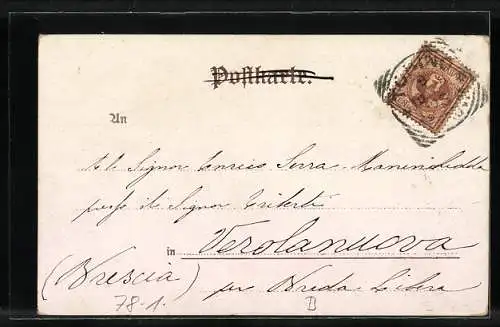 Postkarte.
An
Al Signor Enrico Serra-Maninchedda
presso il Signor
in Verolanuova
(Brescia) per Breda Libera
78-1. B